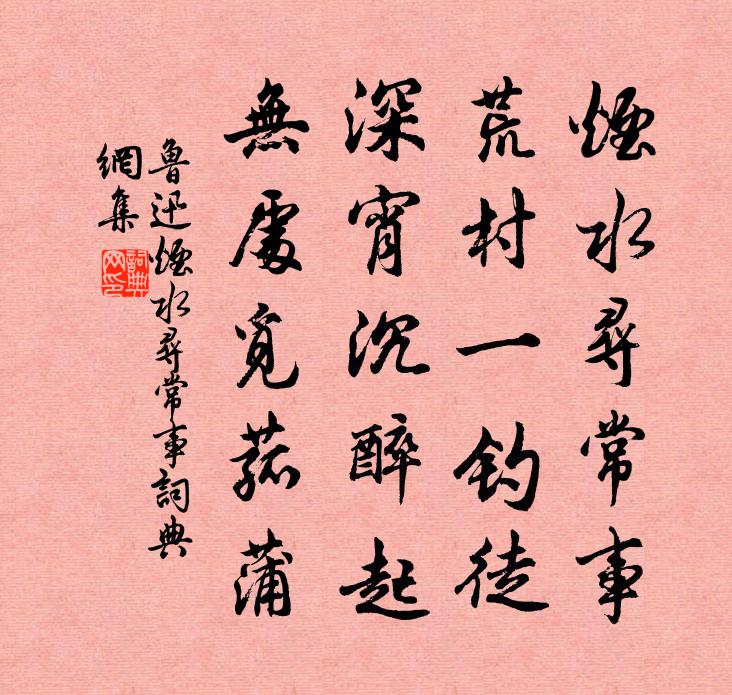 煙水尋常事
荒村一釣徒
深宵沉醉起
無處覓菰蒲
魯迅煙水尋常事詞典
網集
詞典網印